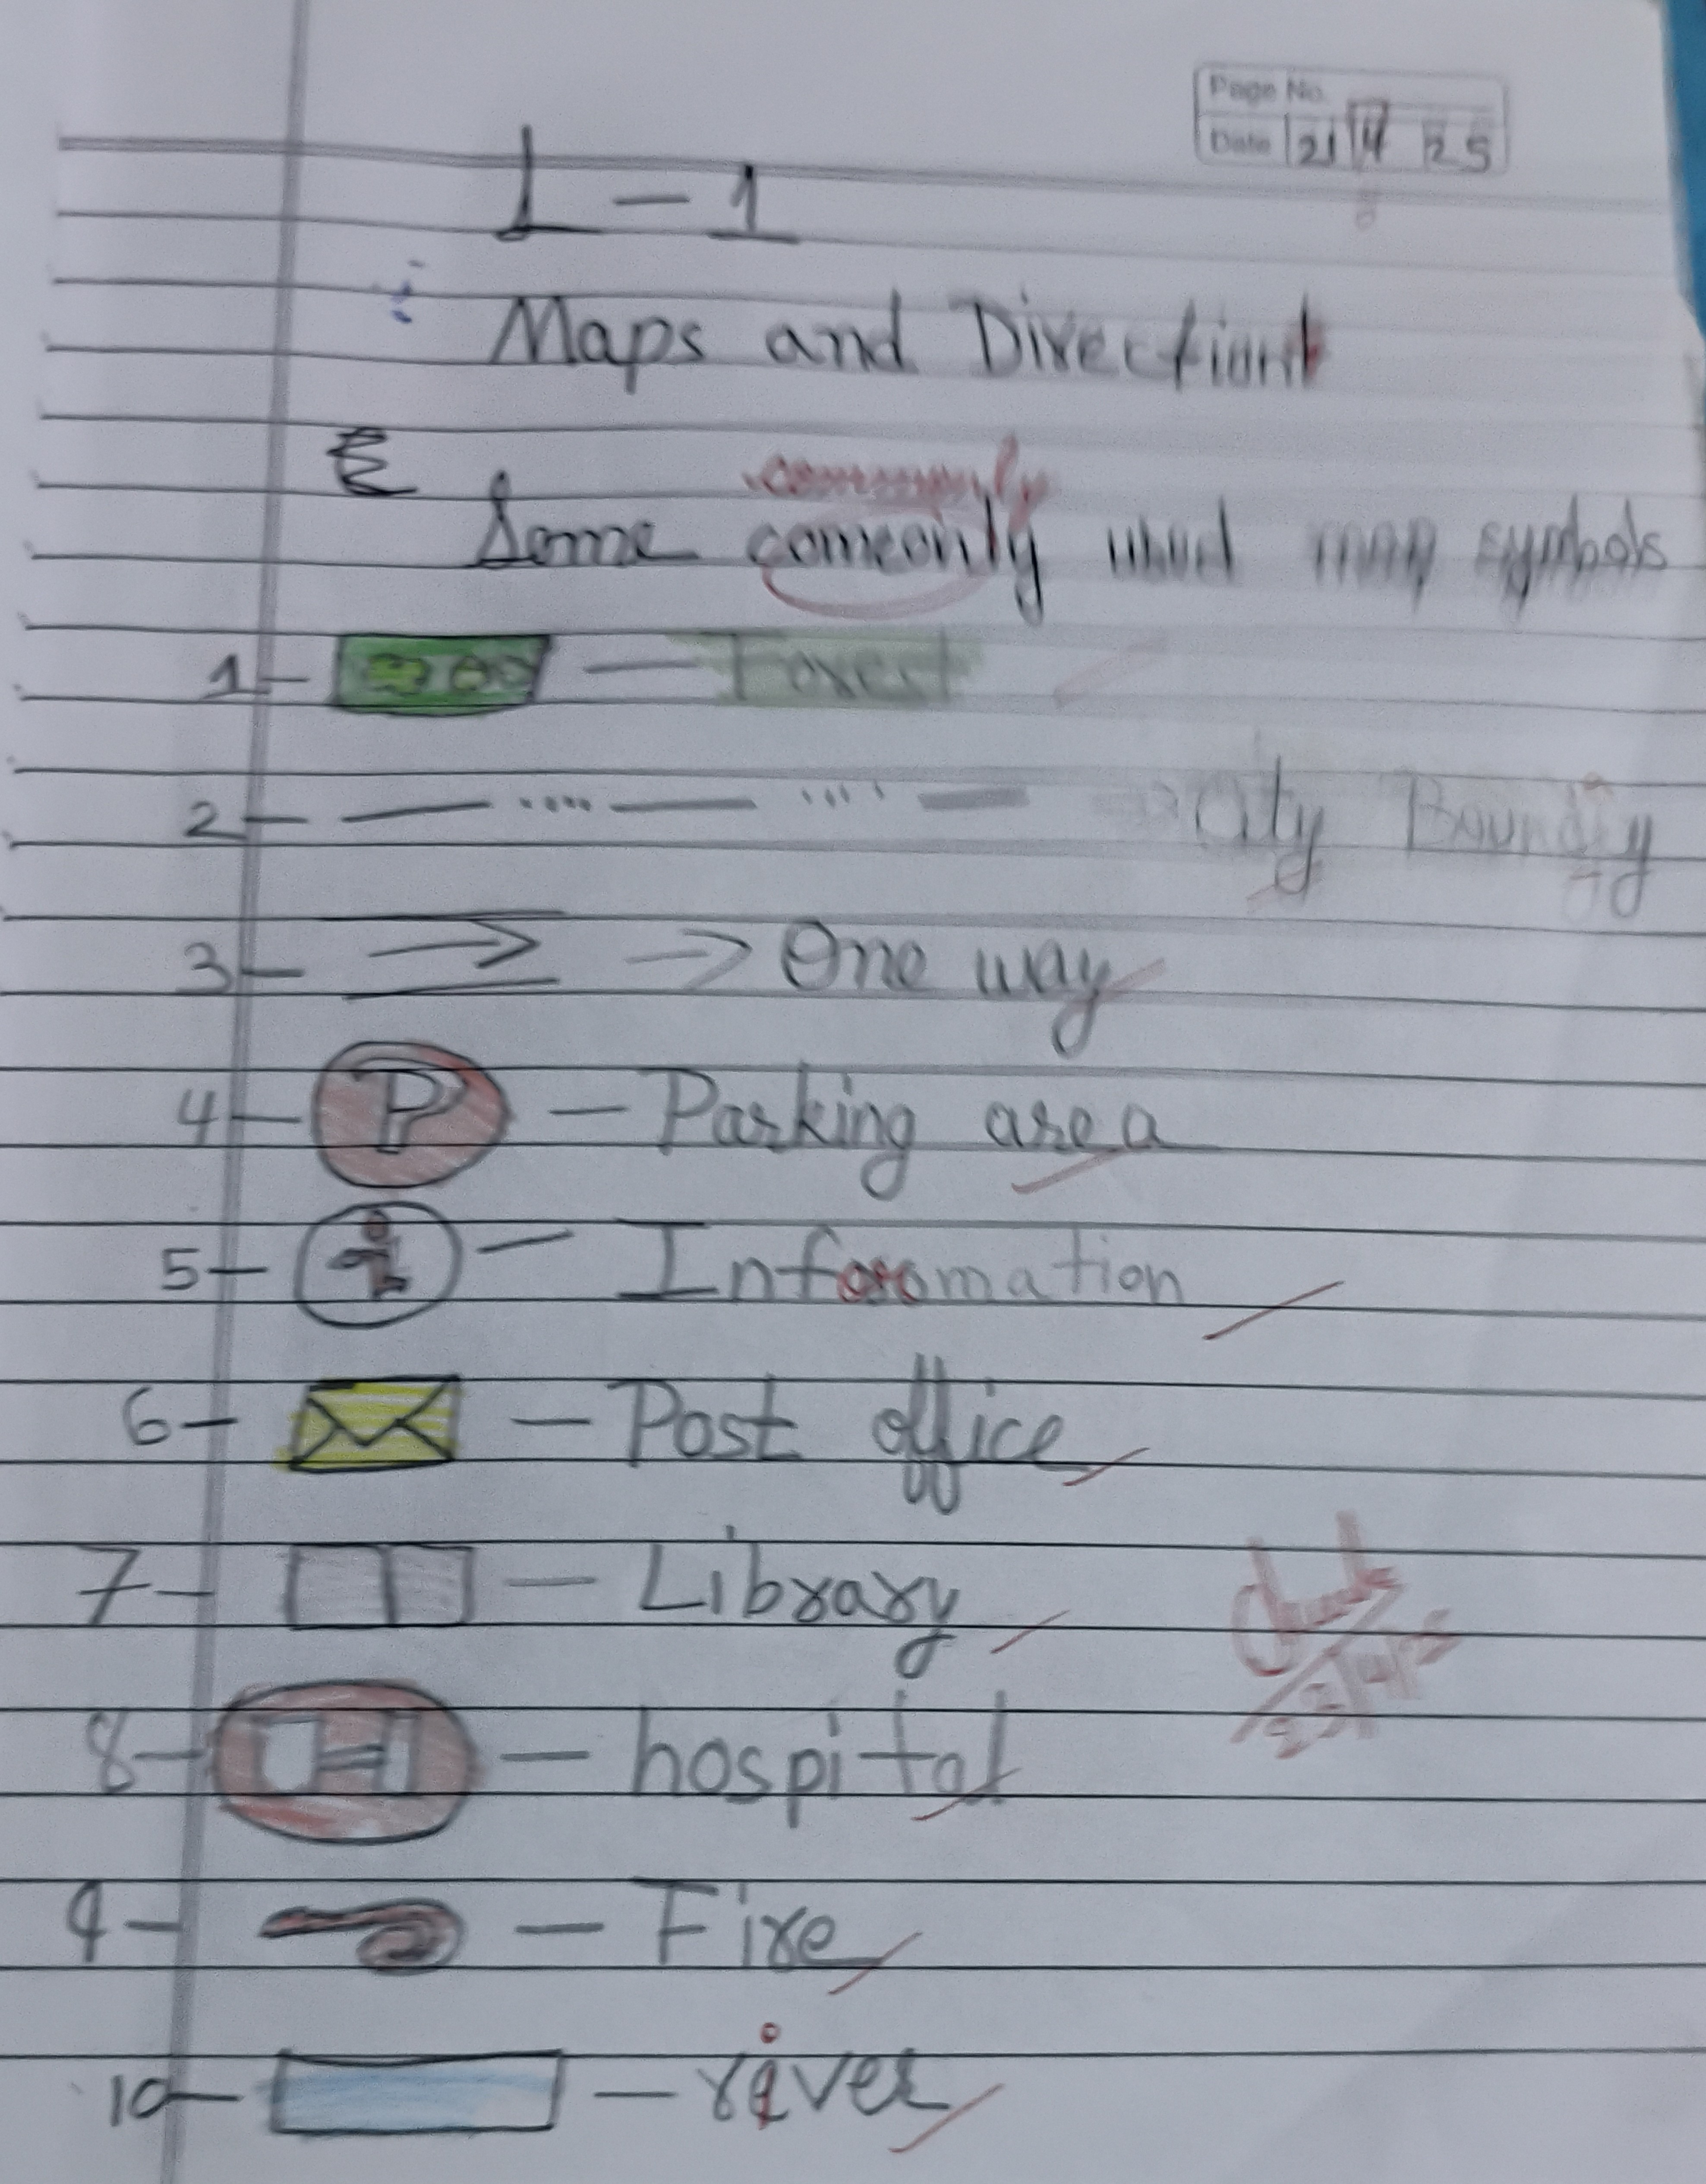 Page No.
Date 21 4 25
L - 1
Maps and Direction
commonly
Some comeonly used map symbols
1- — Forest
2- City Boundry
3- → One way
4- P — Parking area
5- i — Information
6- — Post office
7- — Library
8- H — hospital
9- — Fire
10- — river
23/4/25